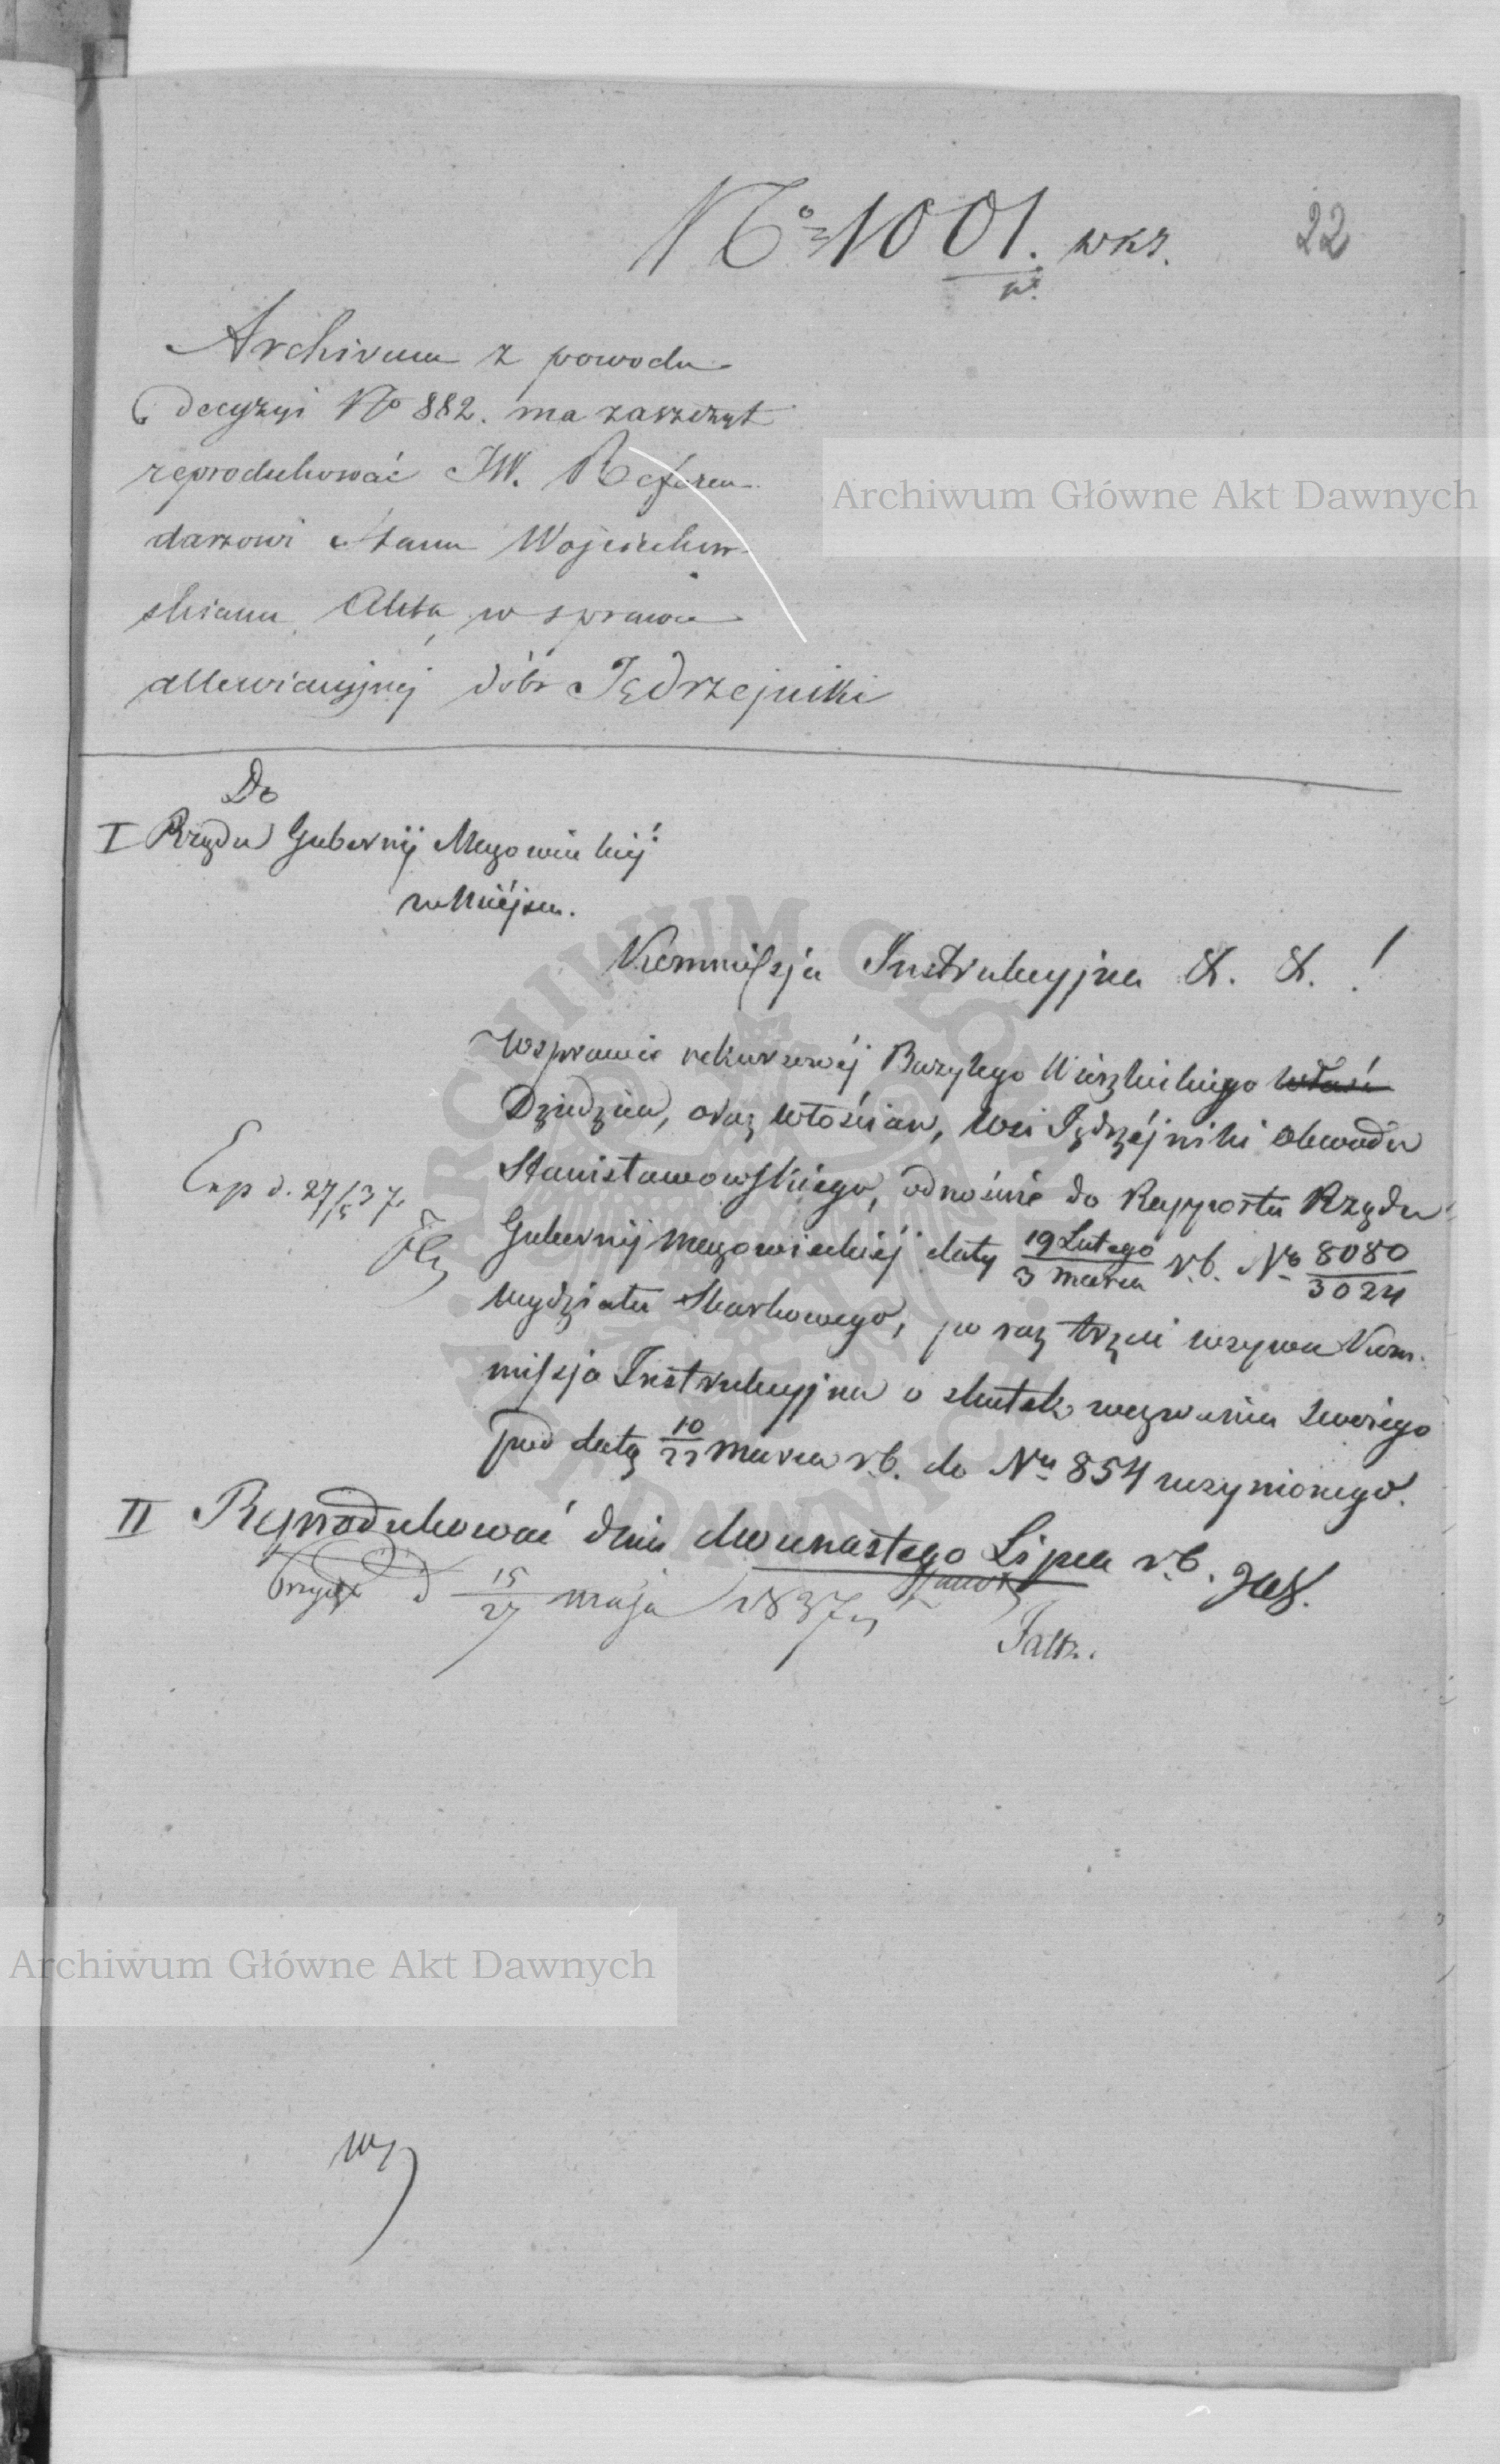 No 1001. wkr.
22
Archivum z powodu
decyzyi No 882. ma zaszczyt
reprodukować JW. Referen
darzowi Stanu Wojciechow
skiemu Akta w sprawie
allewiacyjnej dóbr Jędrzejniki
Do
I Rządu Gubernij Mazowieckiéj
w Miéjscu.
Kommissja Instrukcyjna &. &. !
W sprawie rekursowéj Bazylego Wierzbickiego
Dziedzica, oraz włościan, wsi Jędrzéjniki Obwodu
Stanisławowskiego, odnośnie do Rapportu Rządu
Exp d. 27/5 37.
Gubernij Mazowieckiéj daty 19 Lutego / 3 Marca r.b. No 8080 / 3024
Wydziału Skarbowego, po raz trzeci wzywa Kom
missja Instrukcyjna o skutek wezwania swoiego
pod datą 10 / 22 Marca r.b. do Nu 854 uczynionego.
II Reprodukować dnia dwunastego Lipca r.b.
d 15 / 27 maja 1837
Archiwum Główne Akt Dawnych
Archiwum Główne Akt Dawnych
ARCHIWUM GŁÓWNE AKT DAWNYCH